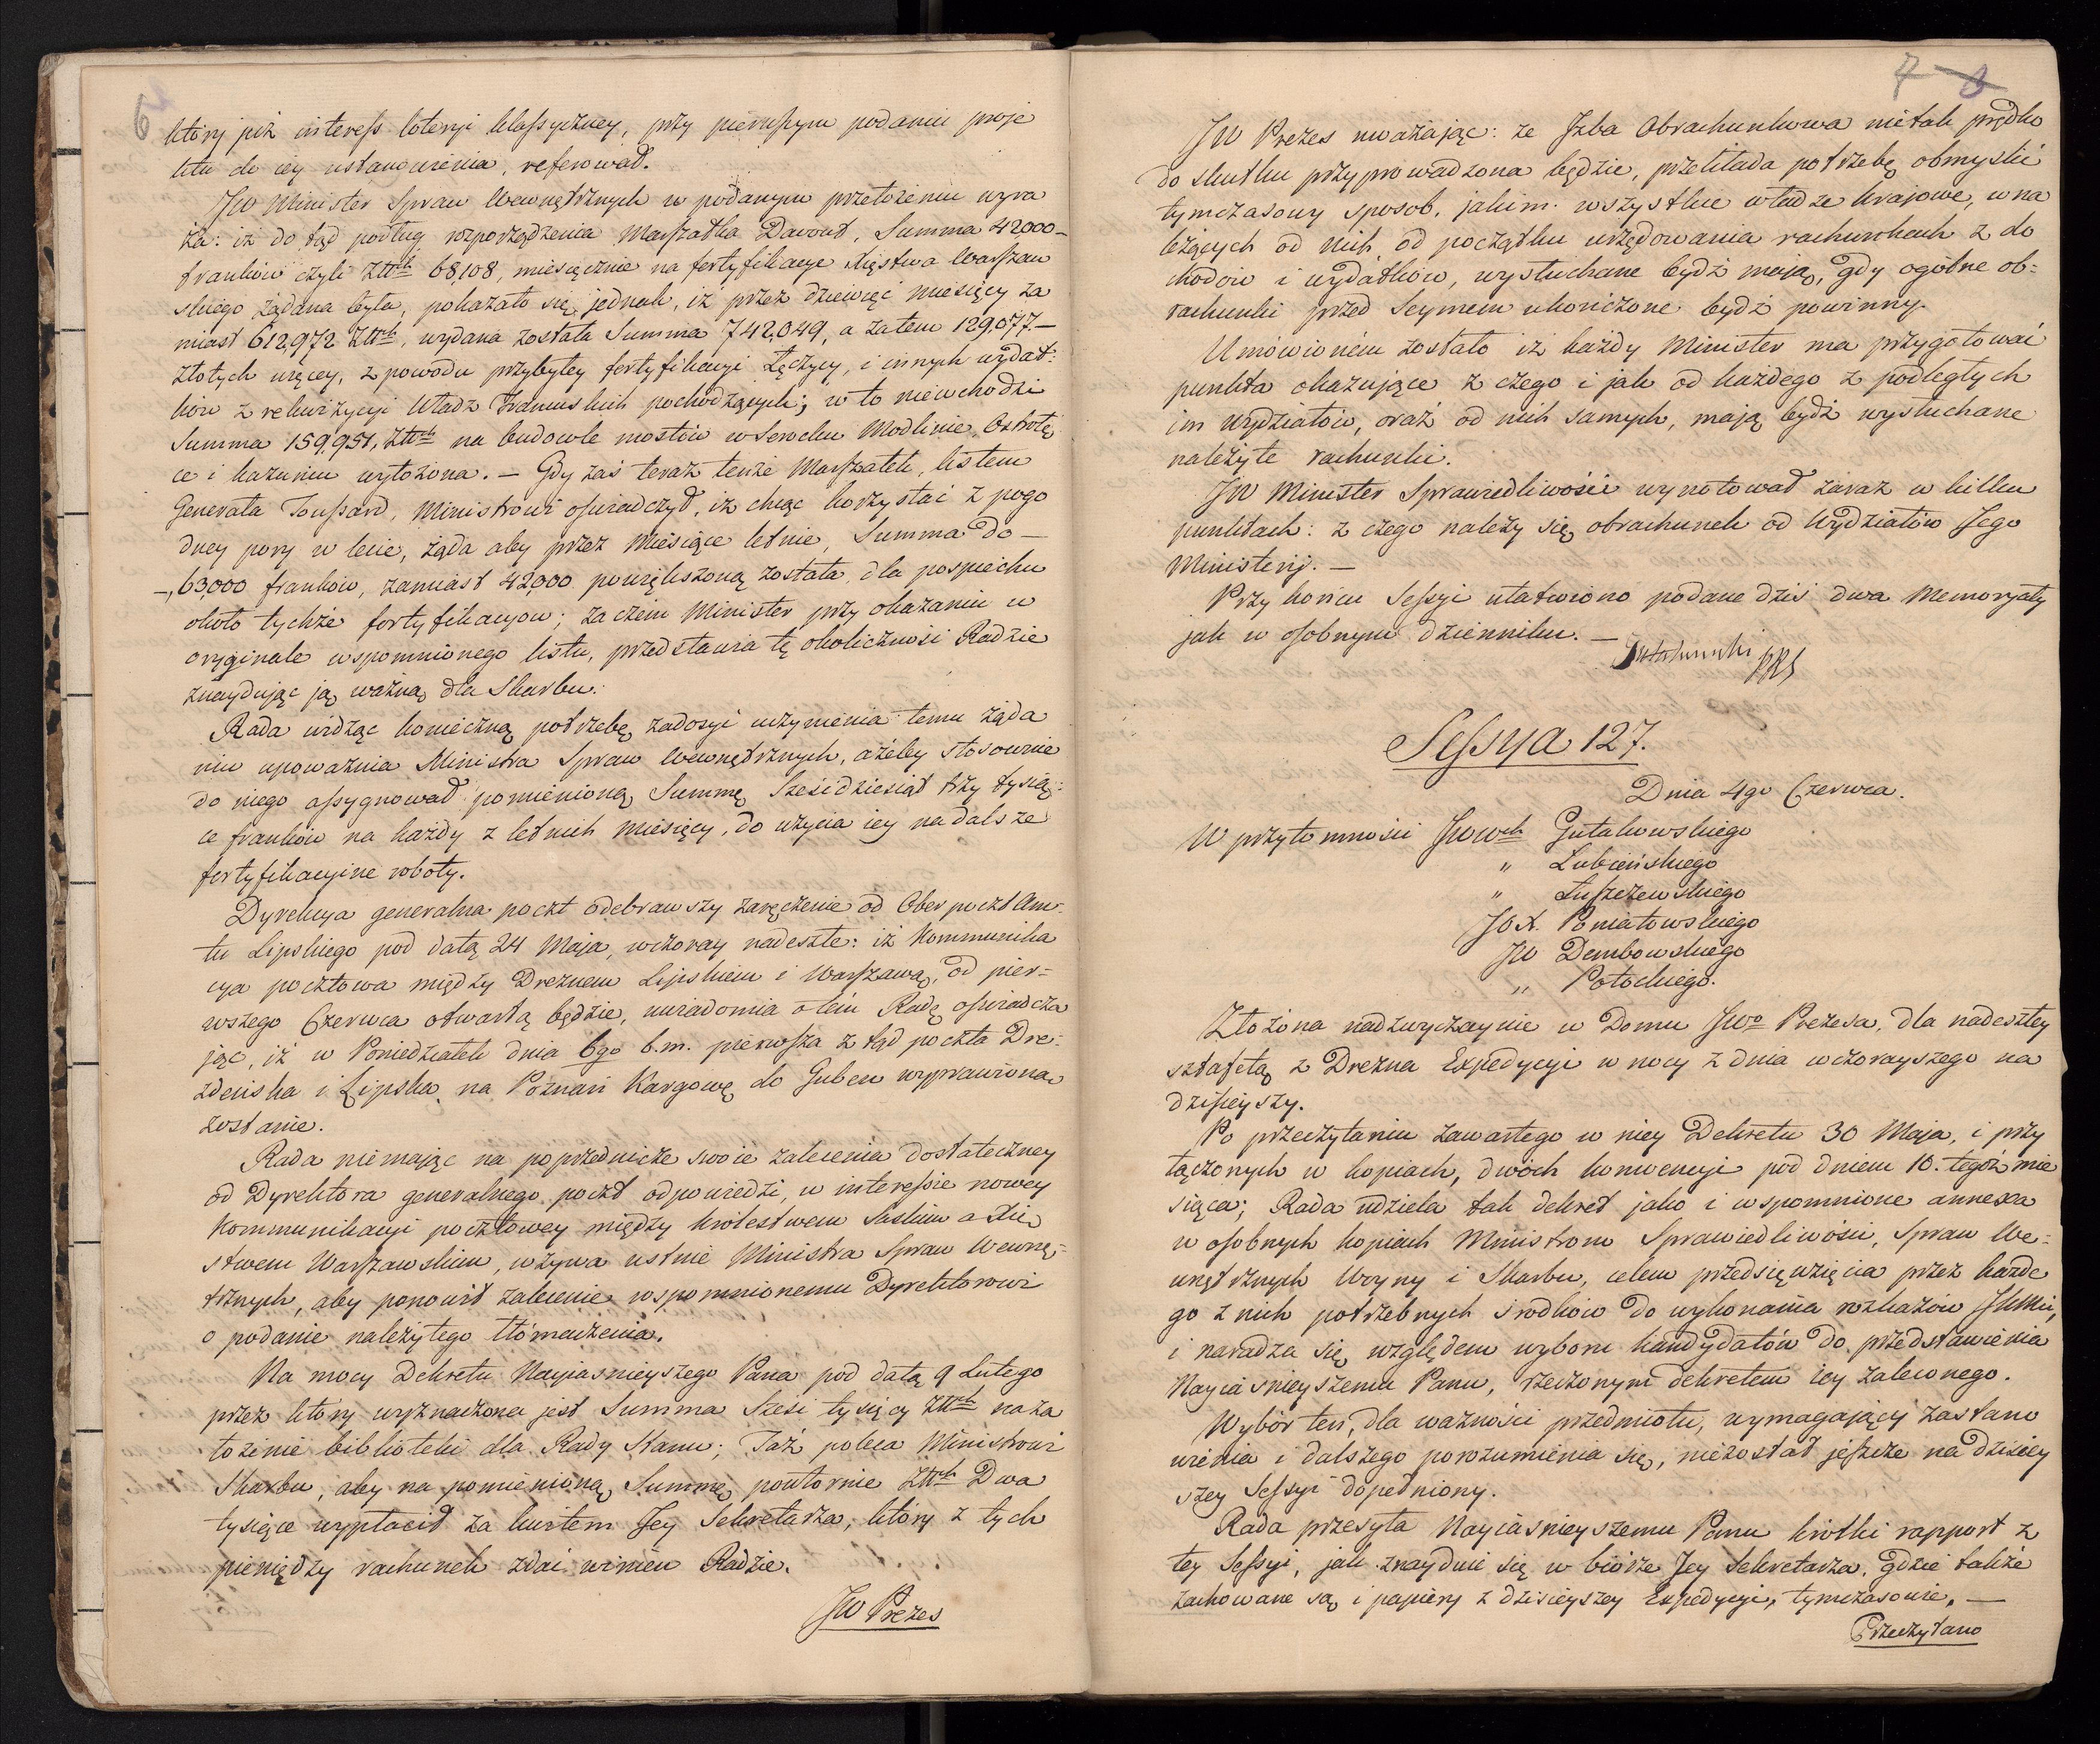 6
który już interess loteryi klassyczney, przy pierwszym podaniu proje
ktu do iey ustanowienia, referował.
JW Minister Spraw Wewnętrznych w podanym przełożeniu wyra
ża: iż do tąd podług rozporządzenia Marszałka Davout, Summa 42000 –
franków czyli Złtch 68,108, miesięcznie na fortyfikacye Xięstwa Warszaw
skiego żądana była, pokazało się jednak, iż przez dziewięć miesięcy za
miast 612,972 Złtch, wydana została Summa 742,049, a zatem 129,077. –
złotych więcey, z powodu przybyłey fortyfikacyi Łęczycy, i innych wydat:
ków z rekwizycyi Władz Francuskich pochodzących; w to niewchodzi
Summa 159,951, Złtch na budowle mostów w Serocku Modlinie, Ostrołę
ce i Kazuniu wyłożona. – Gdy zaś teraz tenże Marszałek, listem
Generała Toussard, Ministrowi oświadczył, iż chcąc korzystać z pogo
dney pory w lecie, żąda aby przez Miesiące letnie, Summa do –
–, 63,000 franków, zamiast 42,000 powiększoną została, dla pospiechu
około tychże fortyfikacyow; zaczem Minister przy okazaniu w
oryginale wspomnionego listu, przedstawia tę okoliczność Radzie
znayduiąc ją ważną dla Skarbu.
Rada widząc konieczną potrzebę zadosyć uczynienia temu żąda
niu upoważnia Ministra Spraw Wewnętrznych, ażeby stosownie
do niego assygnował pomienioną Summę Sześćdziesiąt trzy tysią:
ce franków na każdy z letnich Miesięcy, do użycia iey na dalsze
fortyfikacyine roboty.
Dyrekcya generalna poczt odebrawszy zaręczenie od Oberpoczt Am:
tu Lipskiego pod datą 24 Maja, wczoray nadeszłe: iż Kommunika
cya pocztowa między Dreznem Lipskiem i Warszawą, od pier=
wszego Czerwca otwartą będzie, uwiadomia o tem Radę oświadcza
jąc, iż w Poniedziałek dnia 6go b.m. pierwsza z tąd poczta Dre:
zdeńska i Lipska, na Poznań Kargowę do Guben wyprawiona
zostanie.
Rada niemając na poprzednicze swoie zalecenia dostateczney
od Dyrektora generalnego poczt odpowiedzi, w interessie nowey
Kommunikacyi pocztowey między królestwem Saskim a Xię
stwem Warszawskim, wzywa ustnie Ministra Spraw Wewnę=
trznych, aby ponowił zalecenie wspomnionemu Dyrektorowi
o podanie należytego tłómaczenia.
Na mocy Dekretu Nayiasnieyszego Pana pod datą 9 Lutego
przez który wyznaczona jest Summa Sześć tysięcy Złtch na za
łożenie biblioteki dla Rady Stanu; Taż poleca Ministrowi
Skarbu, aby na pomienioną Summę powtornie Złtch Dwa
tysiące wypłacił za kwitem Jey Sekretarza, który z tych
pieniędzy rachunek zdać winien Radzie.
JW Prezes
7
JW Prezes uważając: że Izba Obrachunkowa nietak prędko
do skutku przyprowadzona będzie, przekłada potrzebę obmyslić
tymczasowy sposob, jakim wszystkie władze krajowe, w na
leżących od nich od początku urzędowania rachunkach z do
chodów i wydatków, wysłuchane bydź mają, gdy ogólne ob=
rachunki przed Seymem ukończone bydź powinny.
Umówioném zostało iż każdy Minister ma przygotować
punkta okazujące z czego i jak od każdego z podległych
im wydziałów, oraz od nich samych, mają bydź wysłuchane
należyte rachunki.
JW Minister Sprawiedliwości wynotował zaraz w kilku
punktach: z czego należy się obrachunek od Wydziałów Jego
Ministerij. –
Przy końcu Sessyi ułatwiono podane dziś dwa Memoryały
jak w osobnym dzienniku. –
Gutakowski PRS
Sessya 127.
Dnia 4go Czerwca.
W przytomności JWWch Gutakowskiego
" Lubieńskiego
" Łuszczewskiego
JOX. Poniatowskiego
JW Dembowskiego
" Potockiego.
Złożona nadzwyczaynie w Domu JWo Prezesa, dla nadeszłey
sztafetą z Drezna Expedycyi w nocy z dnia wczorayszego na
dzisieyszy.
Po przeczytaniu zawartego w niey Dekretu 30 Maja, i przy
łączonych w kopiach, dwóch konwencyi pod dniem 10. tegoż mie
siąca; Rada udziela tak dekret jako i wspomnione annexa
w osobnych kopiach Ministrom Sprawiedliwości, Spraw We=
wnętrznych Woyny i Skarbu, celem przedsięwzięcia przez każde
go z nich potrzebnych środków do wykonania rozkazów JKMci,
i naradza się względem wyboru kandydatów do przedstawienia
Nayiasnieyszemu Panu, rzeczonym dekretem iey zaleconego.
Wybór ten, dla ważności przedmiotu, wymagający zastano
wienia i dalszego porozumienia się, niezostał jeszcze na dzisiey
szey Sessyi dopełniony.
Rada przesyła Nayiasnieyszemu Panu krótki rapport z
tey Sessyi, jak znayduie się w biórze Jey Sekretarza, gdzie także
zachowane są i papiery z dzisieyszey Expedycyi, tymczasowie. –
Przeczytano